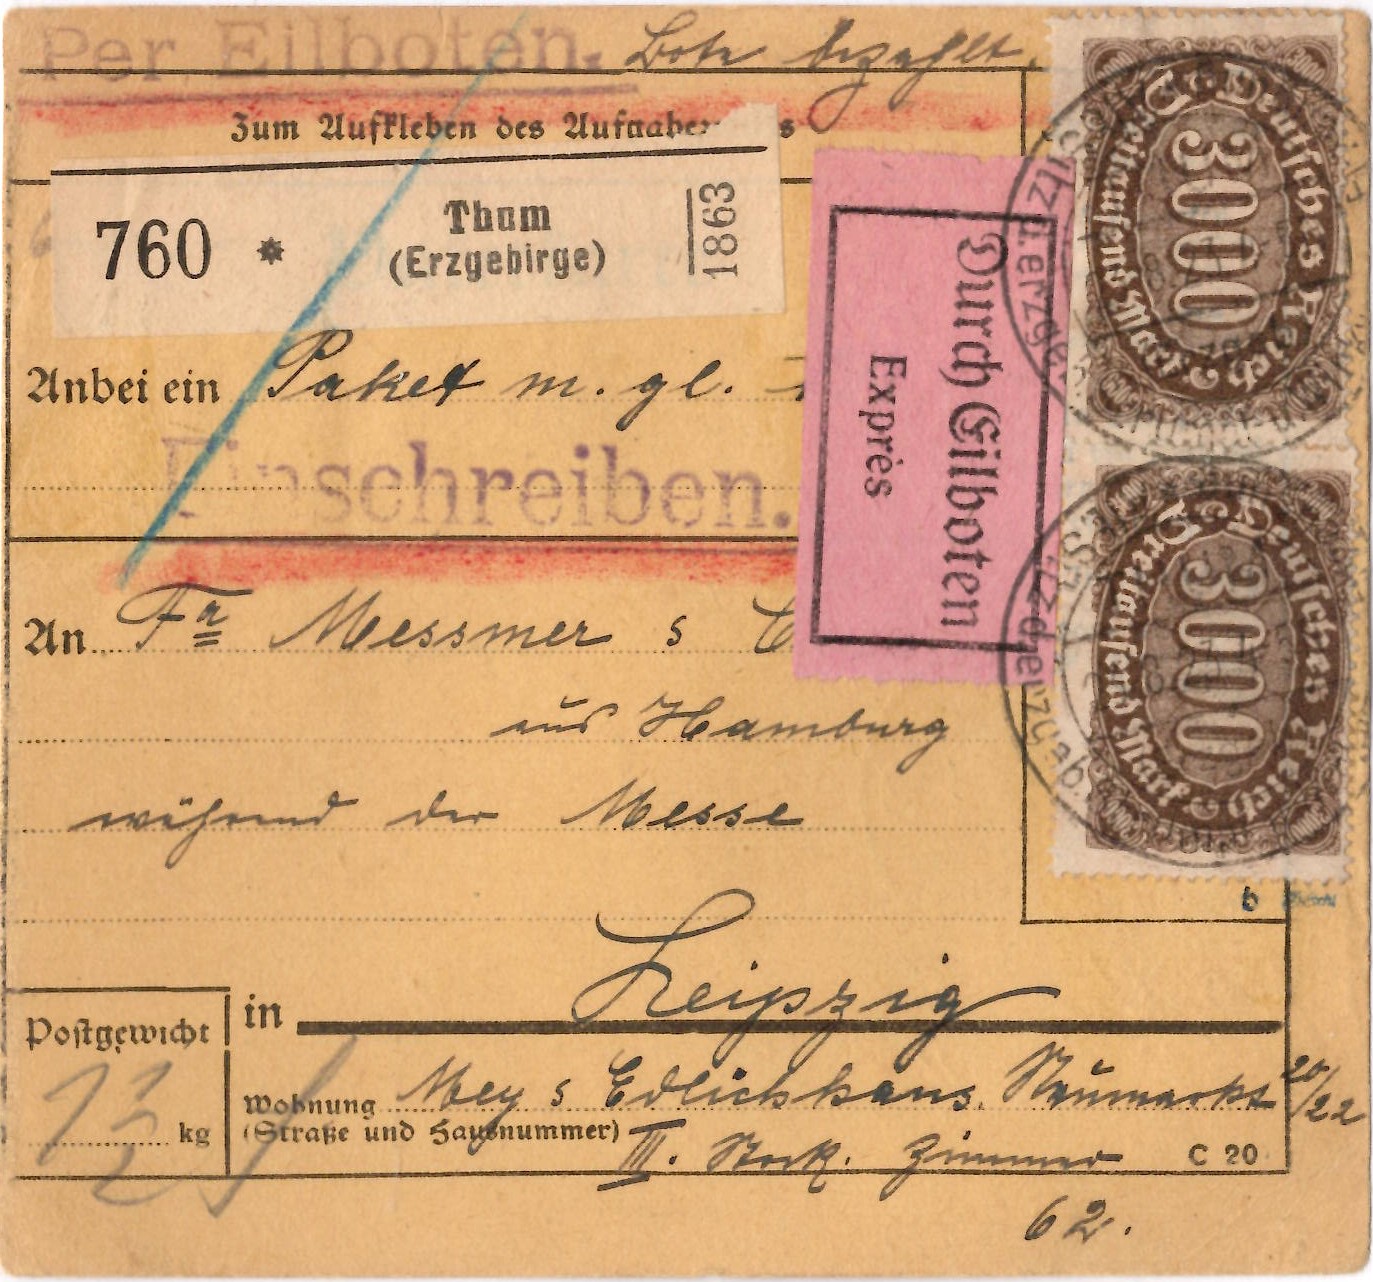 Per Eilboten. Bote bezahlt.
Zum Aufkleben des
760 * Thum
(Erzgebirge)
1863
Durch Eilboten
Exprès
Deutsches Reich
3000
Dreitausend Mark
Deutsches Reich
3000
Dreitausend Mark
Anbei ein Paket m. gl.
Einschreiben.
An Fa Messmer &
aus Hamburg
während der Messe
b
in Leipzig
Postgewicht
kg
Wohnung Mey & Edlichhaus. Neumarkt 20/22
(Straße und Hausnummer) III. Stock. Zimmer
C 20
62.